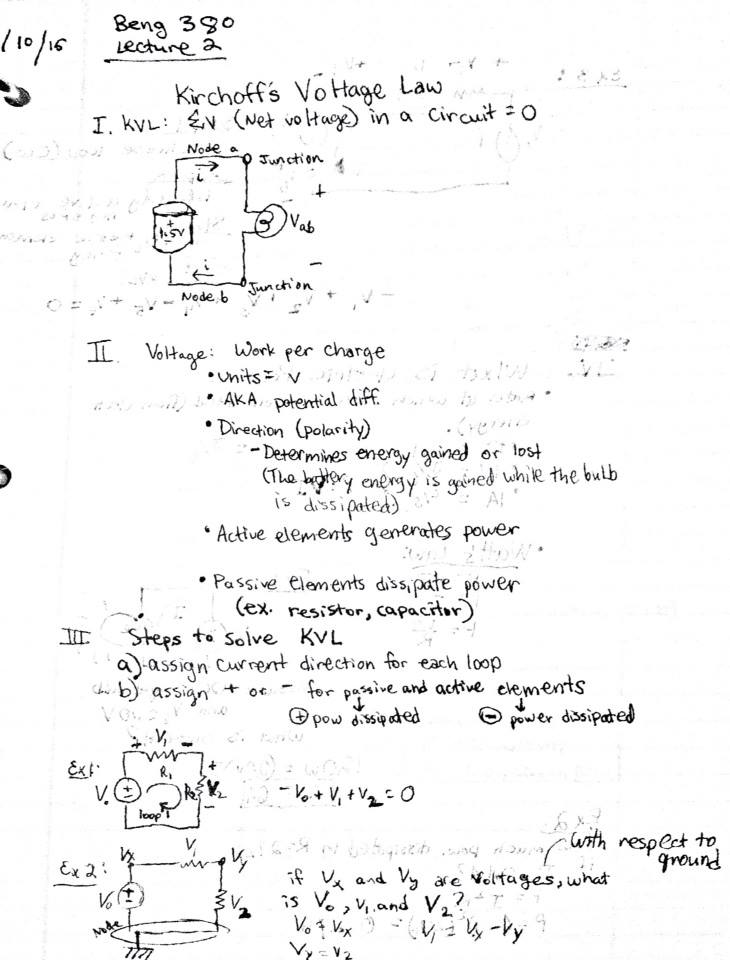 1/10/15
Beng 380
Lecture 2
Kirchoff's Voltage Law
I. KVL: ΣV (Net voltage) in a circuit = 0
Node a
Junction
i
+
1.5V
Vab
i
-
Node b
Junction
II Voltage: Work per charge
• units = V
• AKA potential diff.
• Direction (polarity)
- Determines energy gained or lost
(The battery energy is gained while the bulb
is "dissipated)
• Active elements generates power
• Passive elements dissipate power
(ex. resistor, capacitor)
III Steps to solve KVL
a) assign current direction for each loop
b) assign + or - for passive and active elements
⊕ pow dissipated ⊖ power dissipated
Ex1:
+ V1 -
R1
+
V0
R2 V2
-
loop 1
-V0 + V1 + V2 = 0
Ex 2:
Vx V1 Vy
V0
V2
Node
with respect to
ground
if Vx and Vy are voltages, what
is V0, V1, and V2?
V0 = Vx V1 = Vx - Vy
Vy = V2